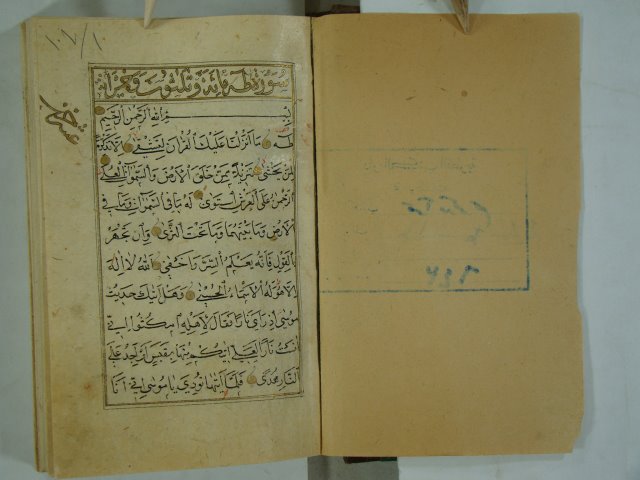 ١٠٧/١
سورة طه مائة وثلثون وخمس اية
بسم الله الرحمن الرحيم
طه ما انزلنا عليك القران لتشقى الا تذكرة
لمن يخشى تنزيلا ممن خلق الارض والسموات العلى
الرحمن على العرش استوى له ما في السموات وما في
الارض وما بينهما وما تحت الثرى وان تجهر
بالقول فانه يعلم السر واخفى الله لا اله
الا هو له الاسماء الحسنى وهل اتيك حديث
موسى اذ راى نارا فقال لاهله امكثوا اني
انست نارا لعلي اتيكم منها بقبس او اجد على
النار هدى فلما اتيها نودي يا موسى اني انا